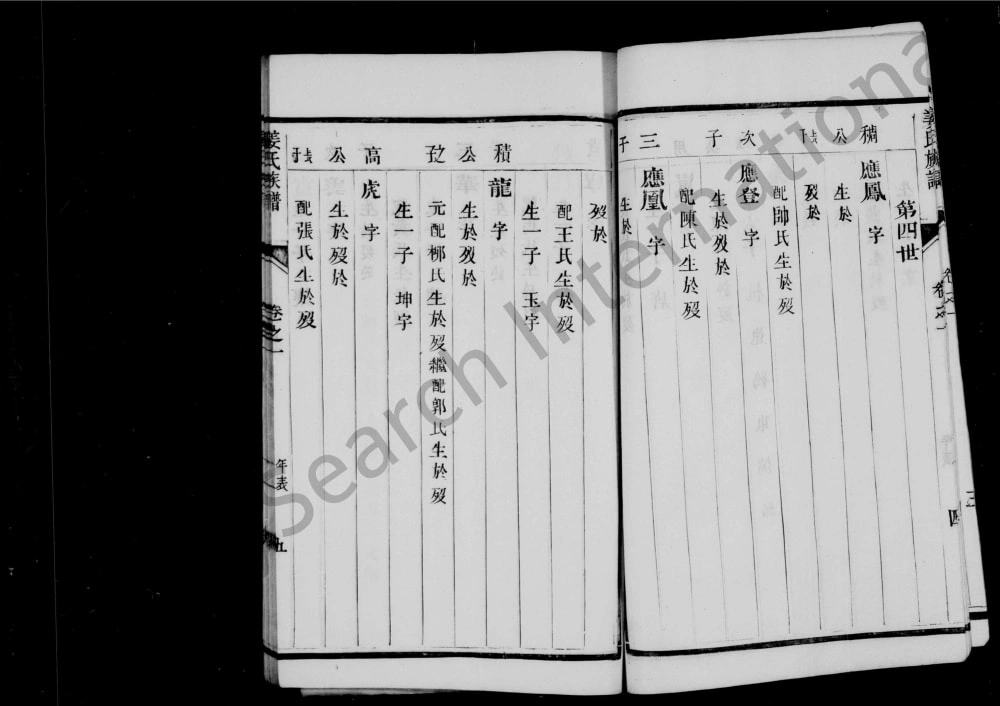 姜氏族譜
卷之一
三
四
第四世
稠 應鳳 字
公 生於
歿於
配帥氏生於歿
次 應登 字
子 生於歿於
配陳氏生於歿
三 應凰 字
子 生於
歿於
配王氏生於歿
生一子 玉字
積 龍 字
公 生於歿於
元配柳氏生於歿繼配郭氏生於歿
生一子 坤字
高 虎 字
公 生於歿於
配張氏生於歿
姜氏族譜 卷之一 年表 五
Search International